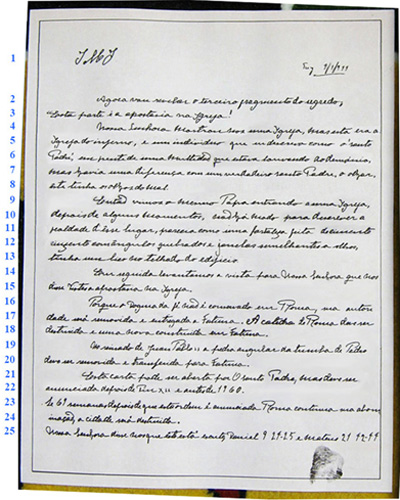 1 J M J Tuy
2 Agora vou revelar o terceiro fragmento do segredo;
3 Esta parte é a apostasia na Igreja!
4 Nossa Senhora mostrou-nos uma Igreja, mas esta era a
5 Igreja do inferno, e um individuo que eu descrevo como o santo
6 Padre, em frente de uma multidaõ que estava louvando ao demonio,
7 mas havia uma diferença com um verdadeiro santo Padre, o olhar,
8 este tinha os olhos do mal.
9 vimos o mesmo Papa entrando a uma Igreja,
10 depois de alguns momentos, modo para descrever a
11 fealdade desse lugar, parecia como uma fortaleza feita de cimento
12 cinzento com angulos quebrados e janelas semelhantes a olhos,
13 tinha um bico no telhado do edificio.
14 Em seguida levantamos a vista para Nossa Senhora que nos
15 disse Vistes a apostasia na Igreja.
16 Porque o Dogma da fé naõ é conservado em Roma, sua autori
17 dade sera removida e entregada a Fatima. A catedral de Roma deve ser
18 destruida e uma nova construida em Fatima.
19 reinado de Juan Pablo II a pedra angular da tumba de Pedro
20 deve ser removida e transferida para Fatima.
21 Esta carta pode ser aberta por O santo Padre, mas deve ser
22 anunciada depois de Pio XII e antes de 1960.
23 Se 69 semanas depois de que esta ordem é anunciada, Roma continua sua abomi
24 naçaõ, a cidade será destruida.
25 Nossa Senhora nos disse que esta escrito, Daniel 9 24-25 e Mateus 21 42-44